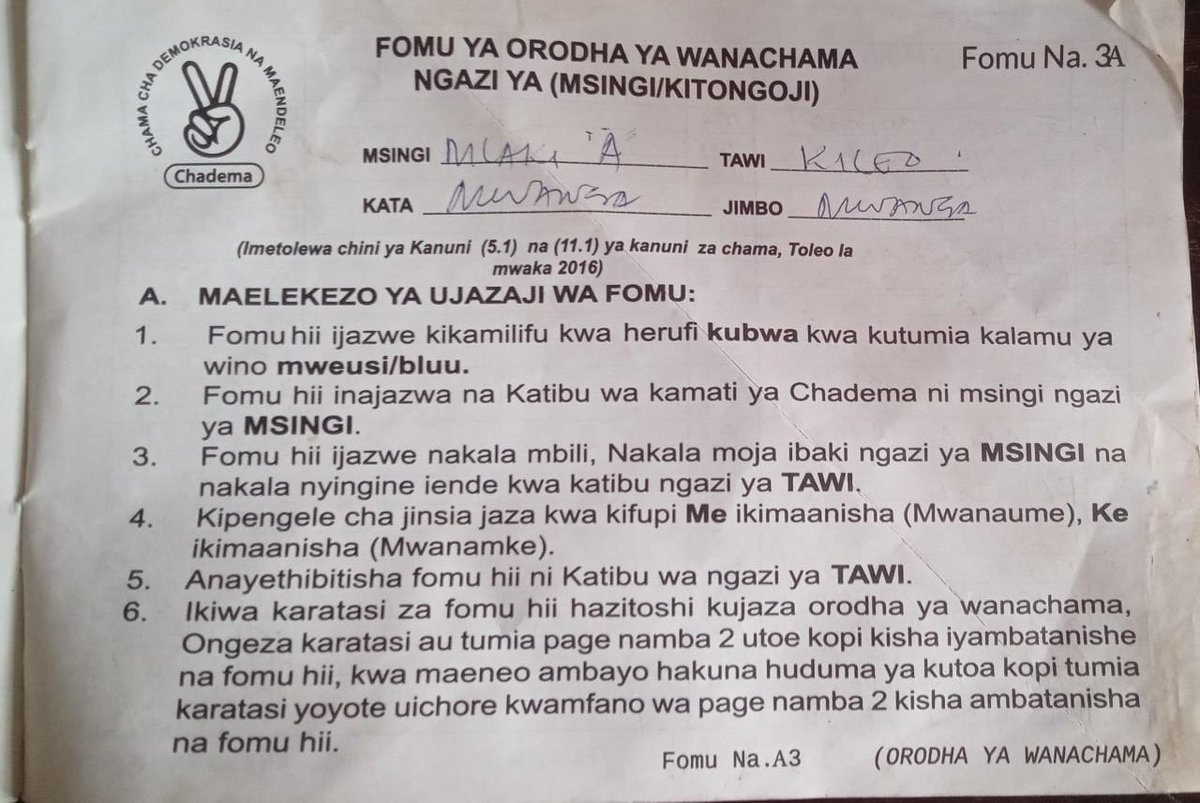 CHAMA CHA DEMOKRASIA NA MAENDELEO
Chadema
FOMU YA ORODHA YA WANACHAMA
NGAZI YA (MSINGI/KITONGOJI)
Fomu Na. 3A
MSINGI MLAKI "A" TAWI KILEO
KATA MWANGA JIMBO MWANGA
(Imetolewa chini ya Kanuni (5.1) na (11.1) ya kanuni za chama, Toleo la
mwaka 2016)
A. MAELEKEZO YA UJAZAJI WA FOMU:
1. Fomu hii ijazwe kikamilifu kwa herufi kubwa kwa kutumia kalamu ya
wino mweusi/bluu.
2. Fomu hii inajazwa na Katibu wa kamati ya Chadema ni msingi ngazi
ya MSINGI.
3. Fomu hii ijazwe nakala mbili, Nakala moja ibaki ngazi ya MSINGI na
nakala nyingine iende kwa katibu ngazi ya TAWI.
4. Kipengele cha jinsia jaza kwa kifupi Me ikimaanisha (Mwanaume), Ke
ikimaanisha (Mwanamke).
5. Anayethibitisha fomu hii ni Katibu wa ngazi ya TAWI.
6. Ikiwa karatasi za fomu hii hazitoshi kujaza orodha ya wanachama,
Ongeza karatasi au tumia page namba 2 utoe kopi kisha iyambatanishe
na fomu hii, kwa maeneo ambayo hakuna huduma ya kutoa kopi tumia
karatasi yoyote uichore kwamfano wa page namba 2 kisha ambatanisha
na fomu hii.
Fomu Na.A3 (ORODHA YA WANACHAMA)